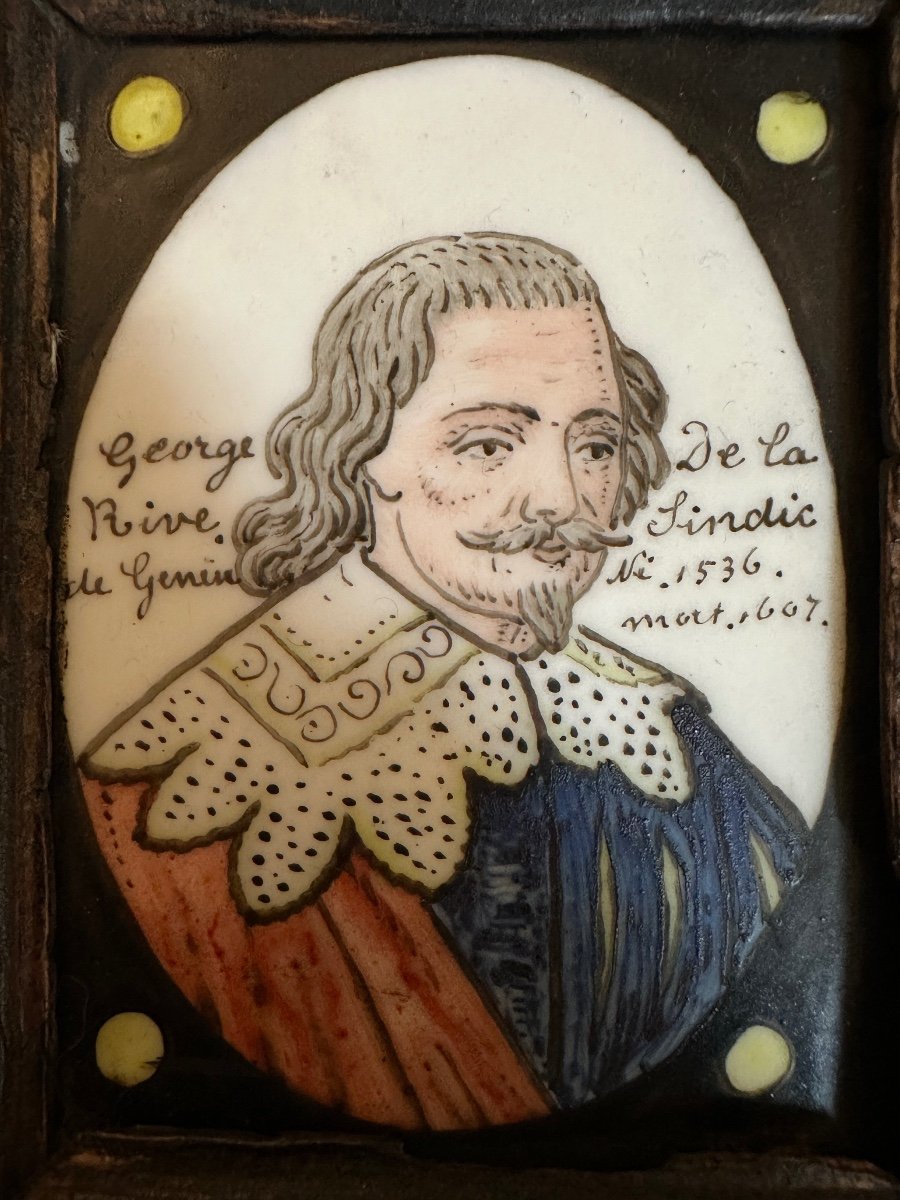 George De la
Rive. Sindic
de Genev Né. 1536.
mort. 1607.